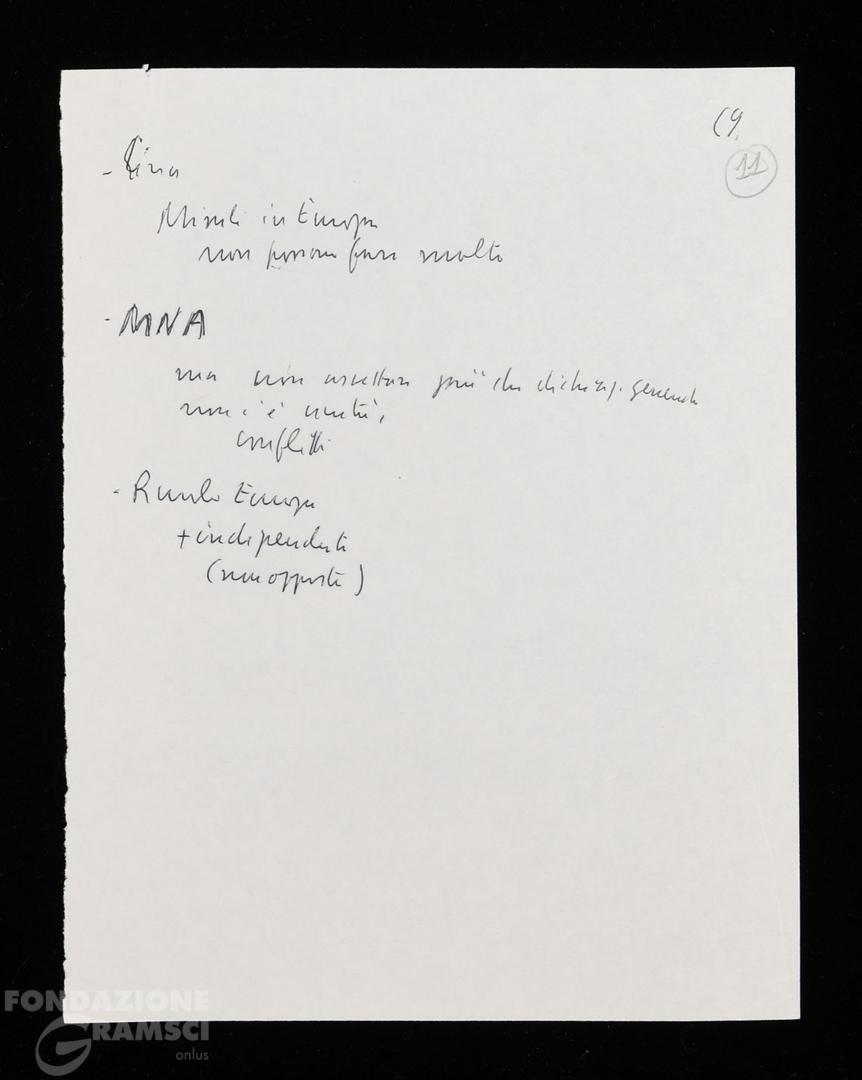 (9.
11
- Cina
Missili in Europa
non possono fare molto
- MNA
ma non aspettarsi più che dichiaraz. generali
non c'è unità,
conflitti
- Ruolo Europa
+ indipendente
(non opposta)
FONDAZIONE
GRAMSCI
onlus